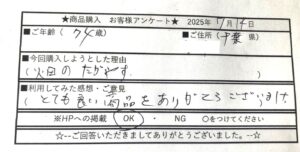 ★商品購入 お客様アンケート★ 2025年7月14日
■ご年齢(74歳) ■ご住所(千葉県)
■今回購入しようとした理由
(火日の たがやす )
■利用してみた感想・ご意見
(とても良い商品をありがとうございます)
※HPへの掲載 OK ・ NG ○をつけてください
☆--ご回答いただきましてありがとうございました。--☆